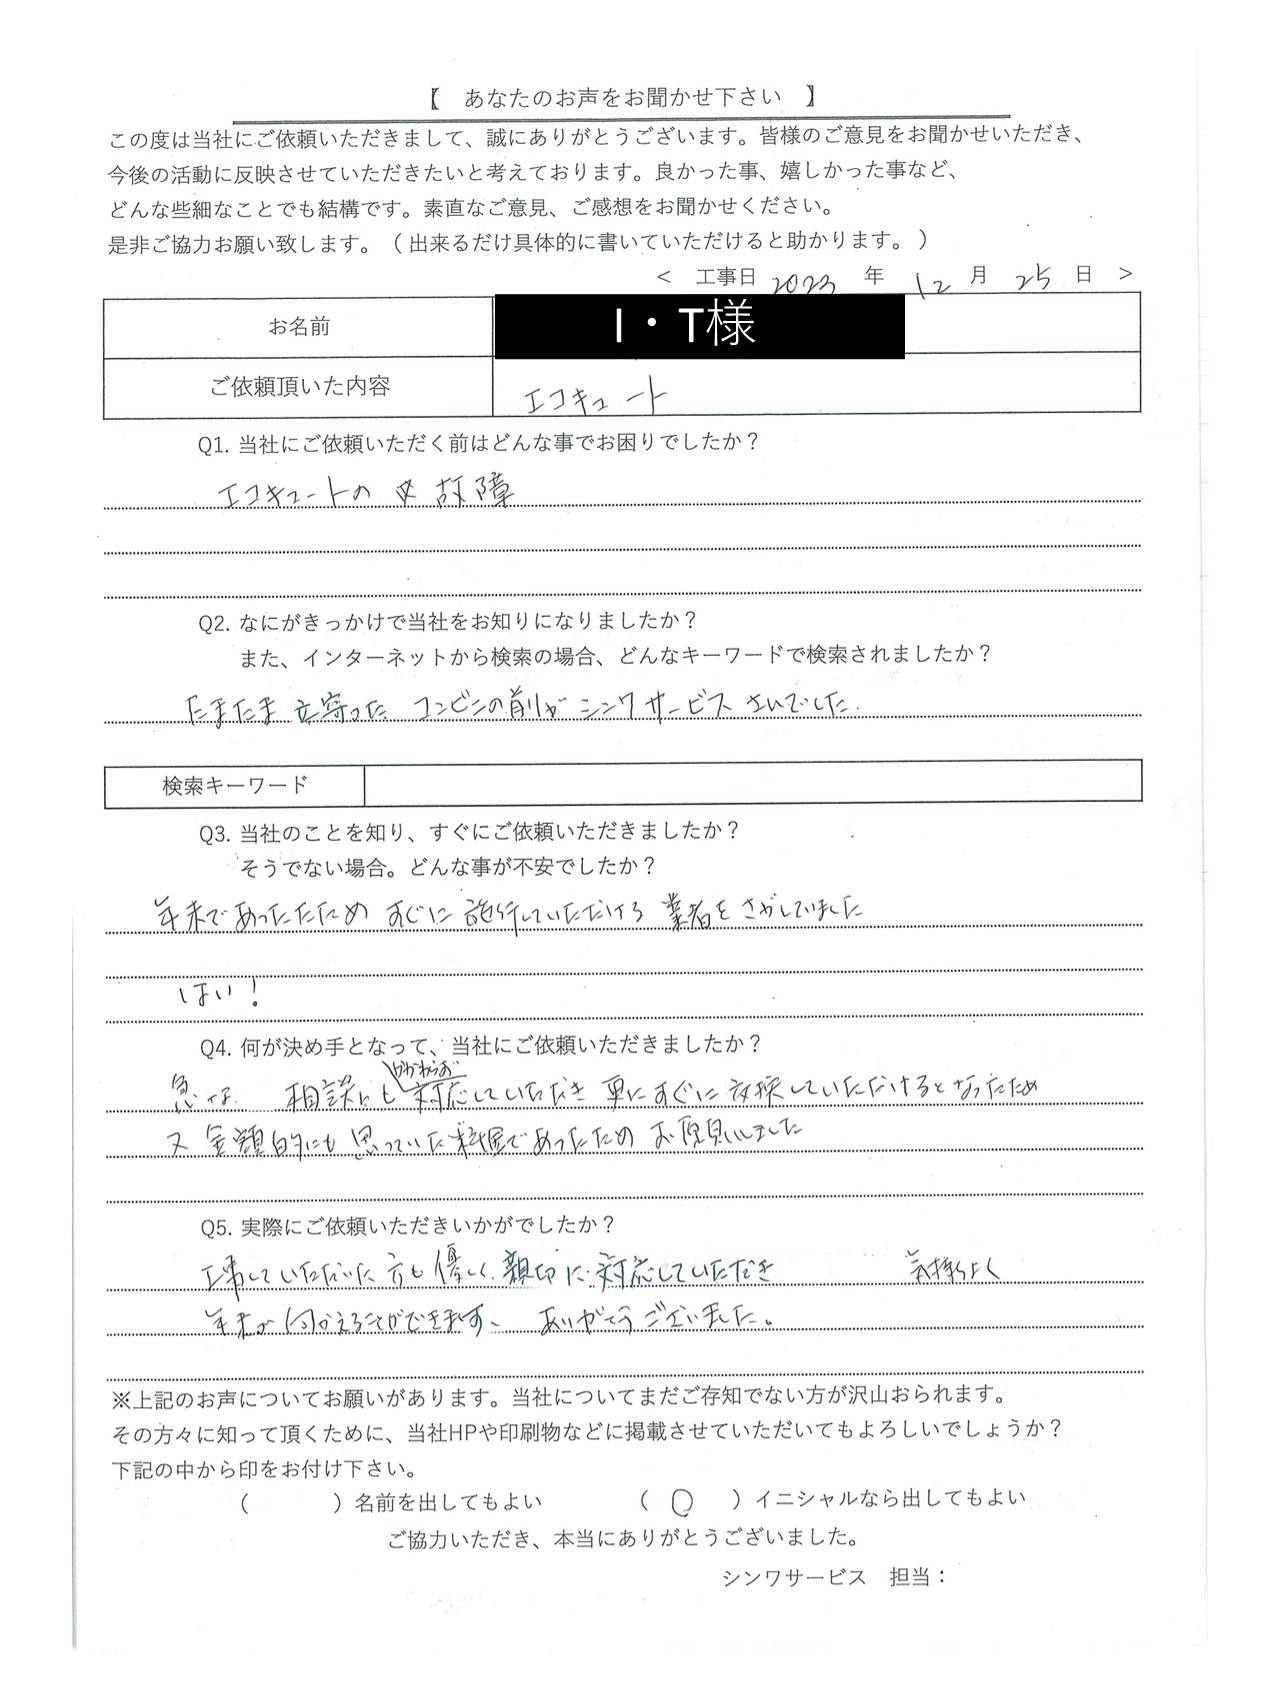 【 あなたのお声をお聞かせ下さい 】
この度は当社にご依頼いただきまして、誠にありがとうございます。皆様のご意見をお聞かせいただき、
今後の活動に反映させていただきたいと考えております。良かった事、嬉しかった事など、
どんな些細なことでも結構です。素直なご意見、ご感想をお聞かせください。
是非ご協力お願い致します。（出来るだけ具体的に書いていただけると助かります。）
＜ 工事日 2023 年 12 月 25 日 ＞
お名前 I・T様
ご依頼頂いた内容 エコキュート
Q1. 当社にご依頼いただく前はどんな事でお困りでしたか？
エコキュートの 故障
Q2. なにがきっかけで当社をお知りになりましたか？
また、インターネットから検索の場合、どんなキーワードで検索されましたか？
たまたま 立寄った コンビニの前が シンワサービス さんでした.
検索キーワード
Q3. 当社のことを知り、すぐにご依頼いただきましたか？
そうでない場合。どんな事が不安でしたか？
年末であったたため すぐに 施行していただける 業者を さがしていました
はい！
Q4. 何が決め手となって、当社にご依頼いただきましたか？
かかわらず
急な 相談にも 対応していただき 更にすぐに交換していただけるとなったため
又 金額的にも 思っていた料金であったため お願いしました
Q5. 実際にご依頼いただきいかがでしたか？
工事していただいた 方も 優しく、親切に 対応していただき 気持ちよく
年末が 向かえることができます、 ありがとうございました。
※上記のお声についてお願いがあります。当社についてまだご存知でない方が沢山おられます。
その方々に知って頂くために、当社HPや印刷物などに掲載させていただいてもよろしいでしょうか？
下記の中から印をお付け下さい。
（ ）名前を出してもよい （ ○ ）イニシャルなら出してもよい
ご協力いただき、本当にありがとうございました。
シンワサービス 担当：